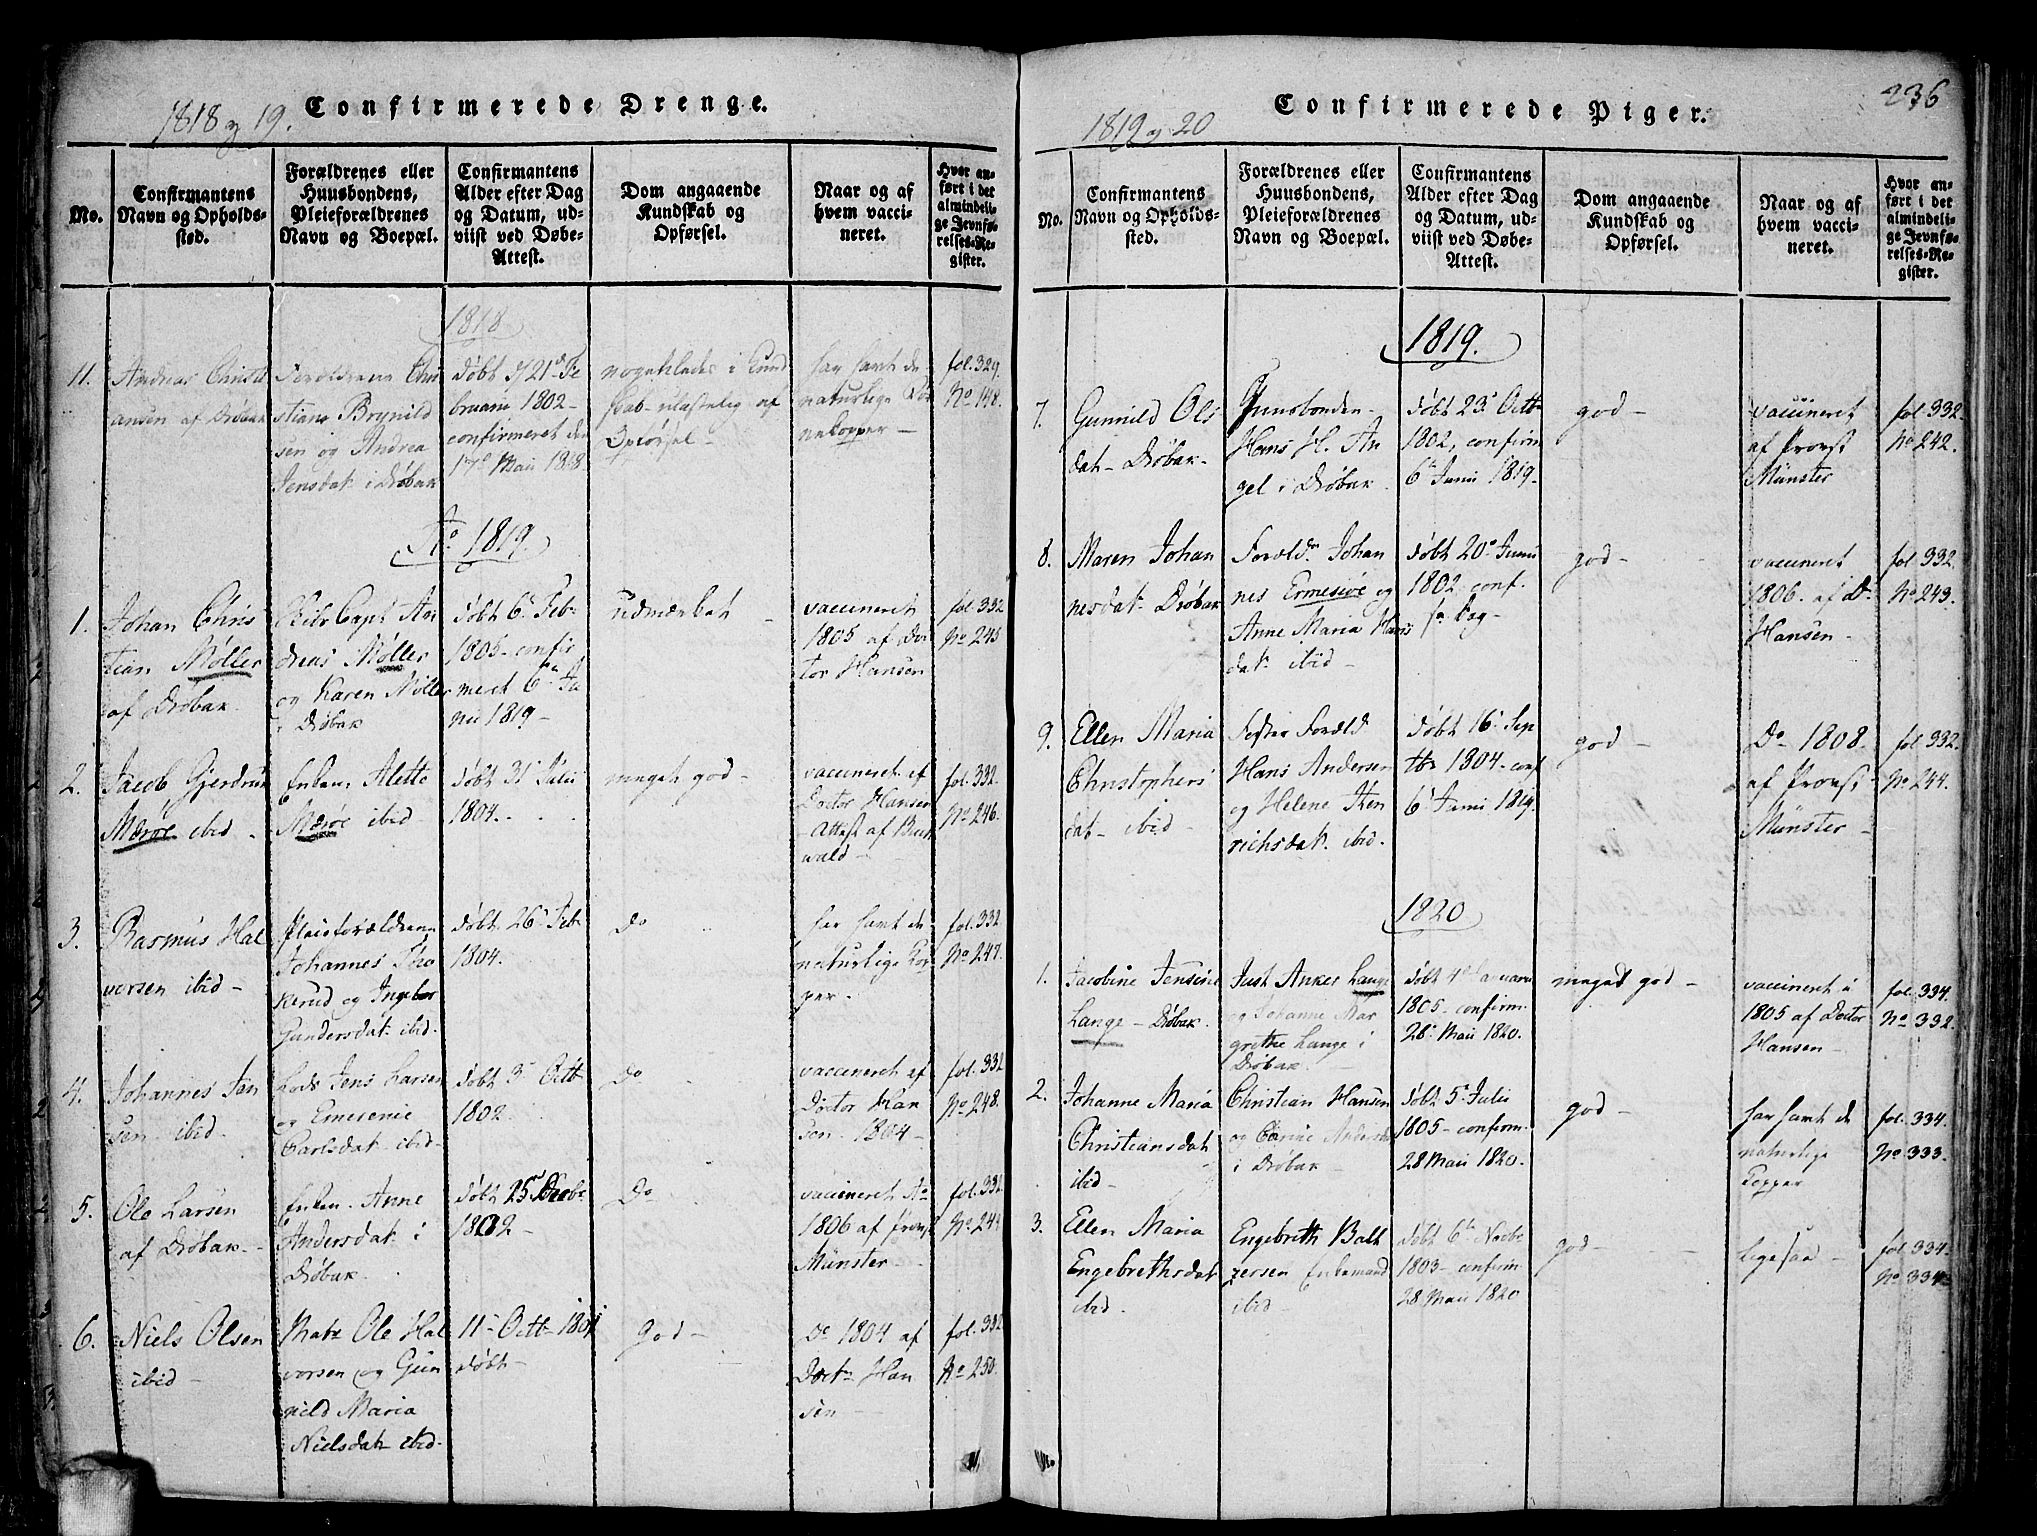 1818 og 19. Confirmerede Drenge.
No.
Confirmantens
Navn og Opholds-
sted.
Forældrenes eller
Huusbondens,
Pleieforældrenes
Navn og Boepæl.
Confirmantens
Alder efter Dag
og Datum, ud-
viist ved Døbe-
Attest.
Dom angaaende
Kundskab og
Opførsel.
Naar og af
hvem vacci-
neret.
Hvor an-
ført i det
almindeli-
ge Jevnfø-
relses-Re-
gister.
1818
11.
Andreas Christi
ansen af Drøbak
Forældrene Chri
stians Brynild
sen og Andrea
Jensdat. i Drøbak
døbt 21de Fe
bruarii 1802-
confirmeret den
17de Maii 1818
noget i Kund
skab- ulastelig af
Opførsel-
har havt de
naturlige Bør
nekopper-
fol. 329.
No 148.
Ao 1819.
1.
Johan Chris
tian Møller
af Drøbak.
Skibs Capt An
dreas Møller
og Karen Møller
i Drøbak
døbt 6te Febr
1805- confir
meret 6te Ju
nii 1819-
udmærket-
vaccineret
1805 af Doc
tor Hansen
fol 332
No 245
2.
Jacob Gjerdrum
Mærøe ibid.
Enken Alette
Mærøe ibid-
døbt 31 Julii
1804.
meget god-
vaccineret af
Doctor Hansen
Attest af Buch
wald-
fol. 332.
No 246.
3.
Rasmus Hal
vorsen ibid-
Pleieforældrene
Johannes Tho
kerud og Ingebor
Gundersdat ibid.
døbt 26 Febr
1804.
Do
har havt de
naturlige Kop
per.
fol. 332
No 247.
4.
Johannes Jen
sen- ibid.
Lods Jens Larsen
og Emesenie
Carlsdat. ibid-
døbt 3 Octbr
1802
Do
vaccineret af
Doctor Han
sen- 1804-
fol. 332
No 248.
5.
Ole Larsen
af Drøbak.
Enken. Anne
Andersdat. i
Drøbak
døbt 25
1802-
Do
vaccineret Ao
1806 af Provst
Münster
fol. 332
No 249
6.
Niels Olsen
ibid-
Matr Ole Hal
vorsen og Gun
nild Maria
Nielsdatr ibid-
11 Octbr 1801
døbt-
god-
Do 1804 af
Doctr Han
sen-
fol. 332
No 250.
236
1819 og 20 Confirmerede Piger.
No.
Confirmantens
Navn og Opholds-
sted.
Forældrenes eller
Huusbondens,
Pleieforældrenes
Navn og Boepæl.
Confirmantens
Alder efter Dag
og Datum, ud-
viist ved Døbe-
Attest.
Dom angaaende
Kundskab og
Opførsel.
Naar og af
hvem vacci-
neret.
Hvor an-
ført i det
almindeli-
ge Jevnfø-
relses-Re-
gister.
1819.
7.
Gunnild Ols
dat- Drøbak-
Huusbonden
Hans H. An
gel i Drøbak
døbt 23 Octbr
1802, confirm
6te Junii 1819-
god-
vaccineret
af Provst
Münster
fol 332.
No 242.
8.
Maren Johan
nesdat. Drøbak
Foreldr Johan
nes Ermesiøe og
Anne Maria Hans
dat. ibid-
døbt 20 Junii
1802 conf.
s. Dag-
god-
vaccineret
1806. af Dr
Hansen-
fol 332.
No 243.
9.
Ellen Maria
Christophers
dat- ibid-
Foster Foreld
Hans Andersen
og Helene Hen
richsdat. ibid.
døbt 16 Sep
tbr 1804- conf
6 Junii 1819.
god-
Do 1808.
af Provst
Münster-
fol 332.
No 244.
1820
1.
Jacobine Jensine
Lange- Drøbak.
Just Anker Lange
og Johanne Mar
grethe Lange i
Drøbak.
døbt 4 Januarii
1805- confirm.
28 Maii 1820.
meged god-
vaccineret i
1805 af Doctor
Hansen-
fol. 334.
No 332.
2.
Johanne Maria
Christiansdat
ibid-
Christian Hansen
og Carine Andersdat
i Drøbak-
døbt 5 Julii
1805- confirm.
28 Maii 1820.
god-
har havt de
naturlige
Kopper
fol. 334.
No 333.
3.
Ellen Maria
Engebrethsdat
ibid.
Engebreth Balt
zersen Enkemand
ibid-
døbt 6te Novbr
1803- confirm
28 Maii 1820
god-
ligesaa-
fol 334.
No 334.